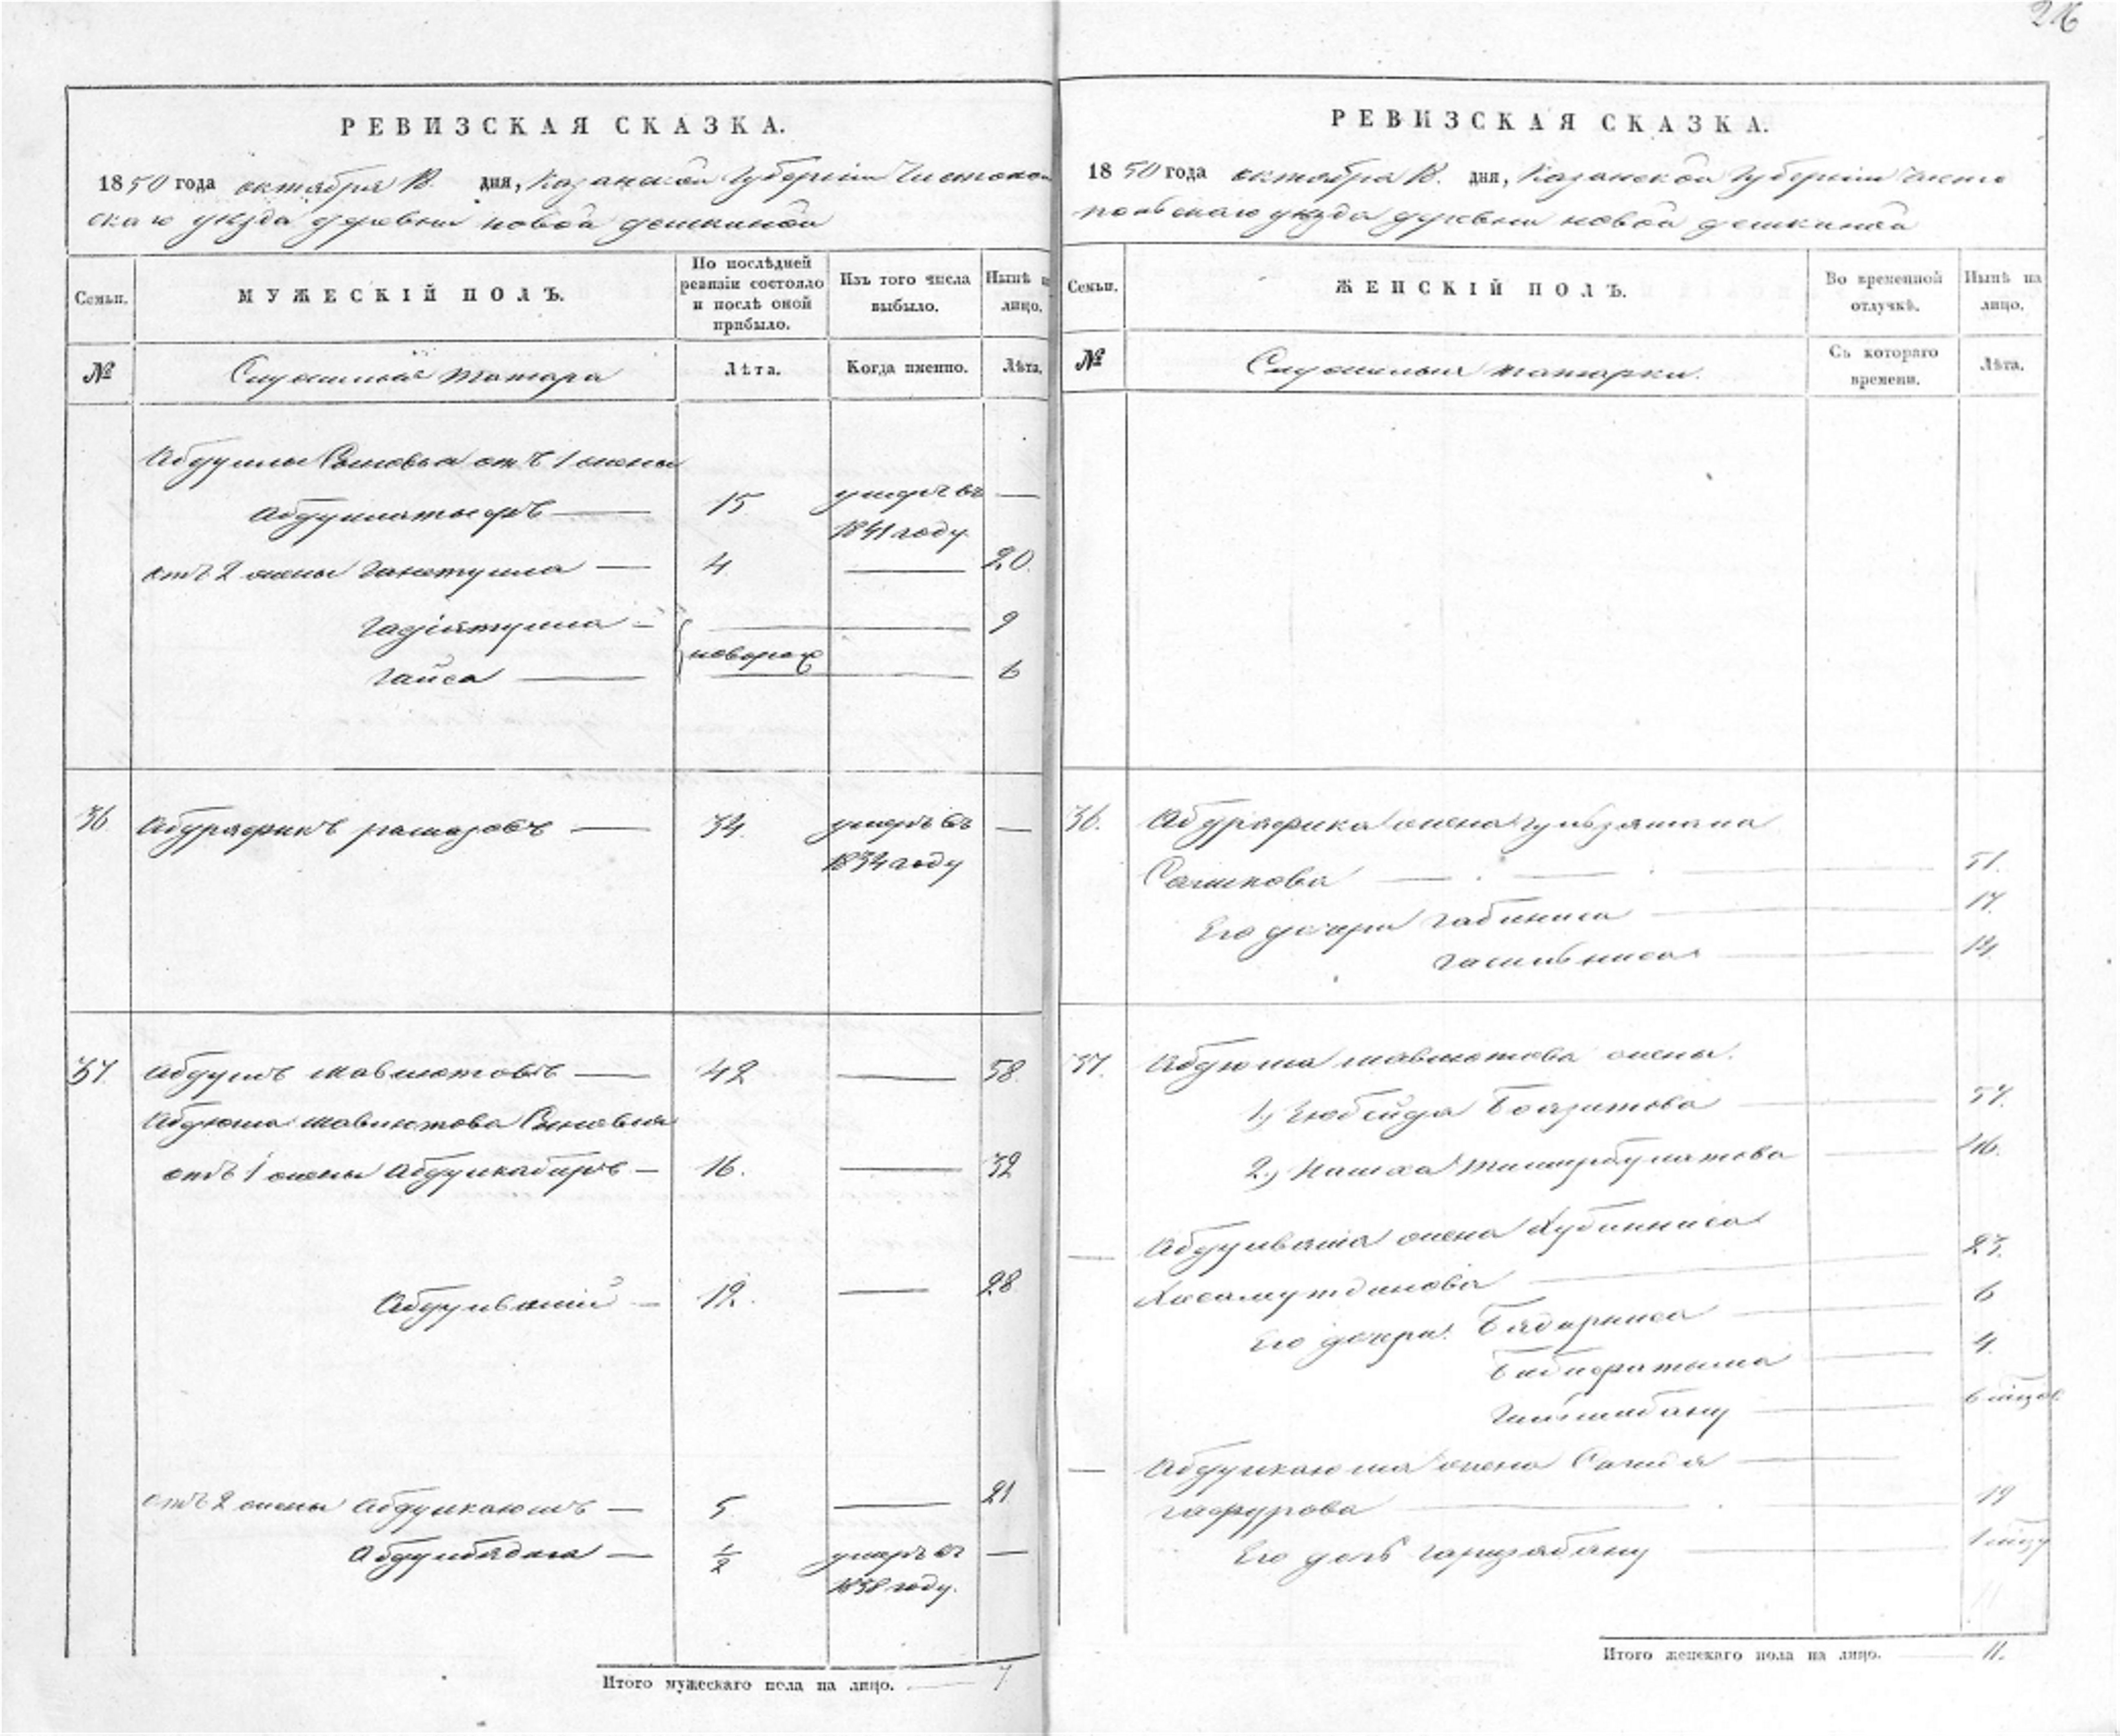 216
РЕВИЗСКАЯ СКАЗКА.
1850 года октября 18. дня, Казанской Губернии Чистополь
скаго уезда деревни новой демкиной
Семьи.
МУЖЕСКІЙ ПОЛЪ.
По послѣдней ревизіи состояло и послѣ оной прибыло.
Изъ того числа выбыло.
Нынѣ на лицо.
№
Служилыя татара
Лѣта.
Когда именно.
Лѣта.
Абдуллы Сыновья отъ 1 жены
Абдуллатыфъ — 15. умеръ въ —
1841 году
отъ 2 жены Ганетулла — 4. — 20.
Гадіятулла — 9
новорож
Гайса — 6
36. Абдрафикъ рамазовъ — 34. умеръ въ —
1834 году
37. Абдулъ мавлютовъ — 42 — 58.
Абдюша мавлютова Сыновья
отъ 1 жены Абдулкабиръ — 16. — 32
Абдулвалій — 12. — 28
отъ 2 жены Абдулкаюмъ — 5 — 21.
— ½ умеръ въ —
1838 году.
Итого мужескаго пола на лицо. — 7
РЕВИЗСКАЯ СКАЗКА.
1850 года октября 18. дня, Казанской Губернии Чисто
польскаго уезда деревни новой демкиной
Семьи.
ЖЕНСКІЙ ПОЛЪ.
Во временной отлучкѣ.
Нынѣ на лицо.
№
Служилыя татарки.
Съ котораго времени.
Лѣта.
36. Абдрафика жена
— 51.
Его дочери Габиниса — 17.
— 14.
37. Абдюша мавлютова жены.
1, Зюбейда Баязитова — 57.
2, тимирбулатова — 46.
— Абдулвалія жена Хубинниса
Хисамутдинова — 23.
Его дочери. Бадарниса — 6
Бибифатыма — 4.
— 6 мѣцов.
— Абдулкаюма жена Сагида —
гафурова — 19
Его дочь — 1 мѣцу
Итого женскаго пола на лицо. — 11.